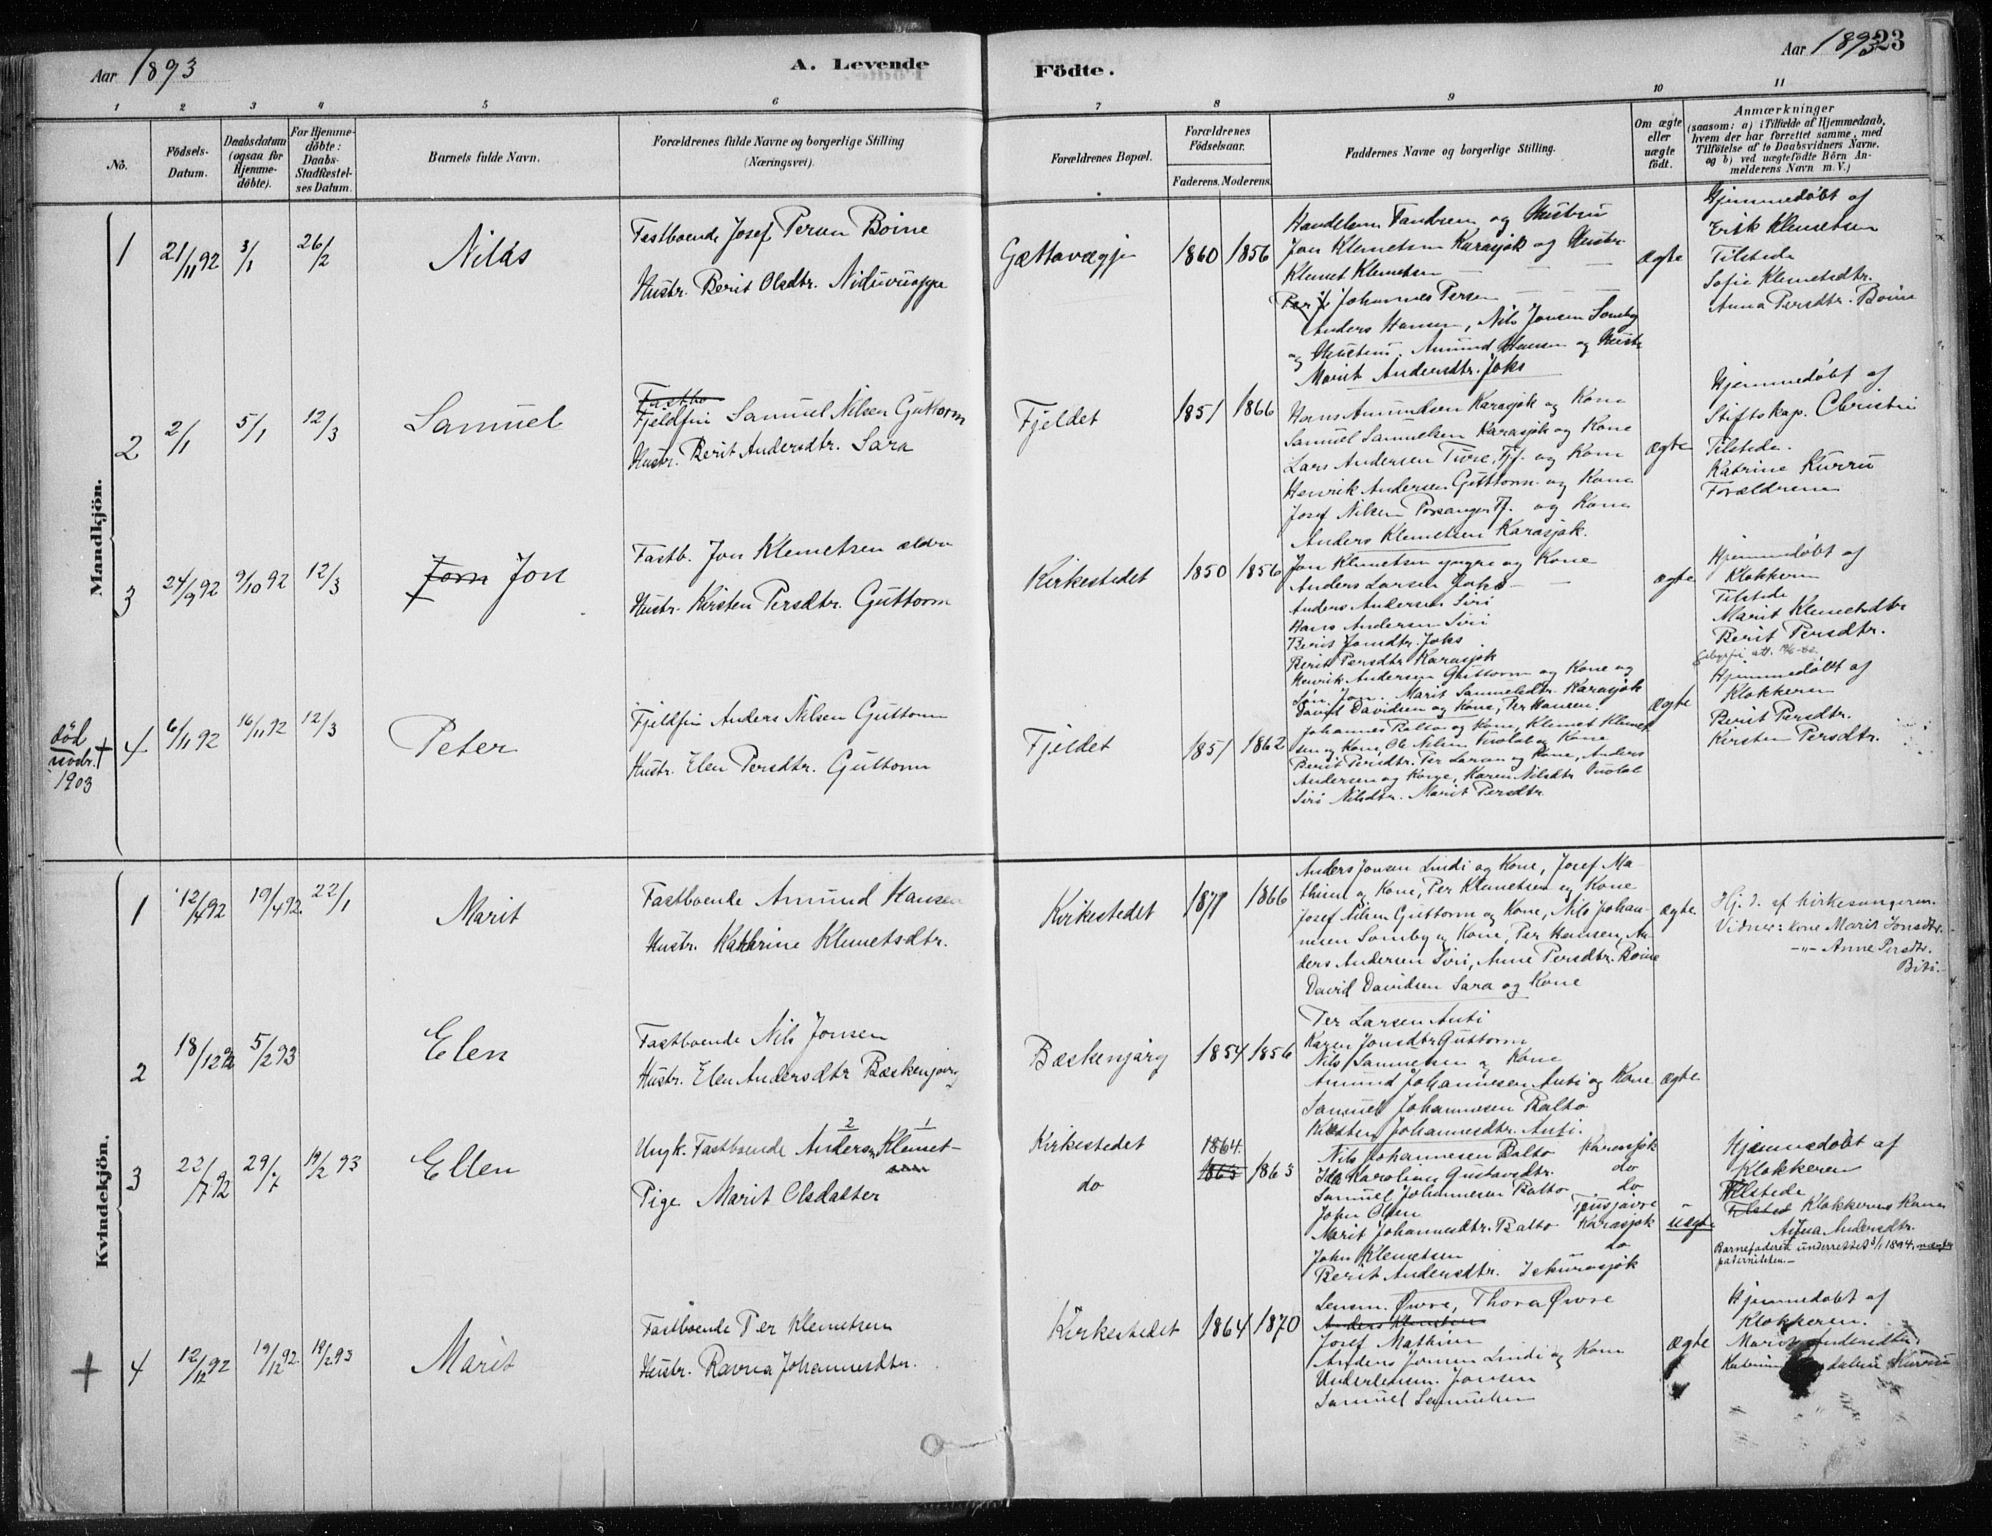 Aar 1893
A. Levende
Födte.
Aar 1893
23
1 2 3 4 5 6 7 8 9 10 11
No.
Födsels-
Datum.
Daabsdatum
(ogsaa for
Hjemme-
döbte).
For Hjemme-
döbte:
Daabs-
Stadfæstel-
ses Datum.
Barnets fulde Navn.
Forældrenes fulde Navne og borgerlige Stilling
(Næringsvei).
Forældrenes Bopæl.
Forældrenes
Födselsaar.
Faderens. Moderens.
Faddernes Navne og borgerlige Stilling.
Om ægte
eller
uægte
födt.
Anmærkninger
(saasom: a) i Tilfælde af Hjemmedaab,
hvem der har forrettet samme, med
Tilföielse af to Daabsvidners Navne.
og b) ved uægtefödte Börn An-
melderens Navn m.V.)
Mandkjön.
1
21/11 92
3/1
26/2
Nilas
Fastboende Josef Persen Boine
Hustr. Berit Olsdtr. Niduvuoppe
Gættovægje
1860
1856
Handelsm. Fandrem og Hustru
Jon Klemetsen Karasjok og Hustr.
Klemet Klemetsen
Johannes Persen
Anders Hansen, Nils Jonsen Somby
og Hustru. Amund Hansen og Hustr.
Marit Andersdtr. Joks
ægte
Hjemmedøbt af
Erik Klemetsen
Tilstede
Sofie Klemetsdtr.
Anna Persdtr. Boine
2
2/1
5/1
12/3
Samuel
Fastbo
Fjeldfin Samuel Nilsen Guttorm
Hustr. Berit Andersdtr. Sara
Fjeldet
1851
1866
Hans Amundsen Karasjok og Kone
Samuel Samuelsen Karasjok og Kone
Lars Andersen Ture, Fj. og Kone
Henrik Andersen Guttorm og Kone
Josef Nilsen Porsanger Fj. og Kone
Anders Klemetsen Karasjok.
ægte
Hjemmedøbt af
Stiftskap. Christie
Tilstede.
Katrine Kurru
Forældrene
3
24/9 92
9/10 92
12/3
Jorn Jon
Fastb. Jon Klemetsen ældre
Hustr. Kirsten Persdtr. Guttorm
Kirkestedet
1850
1856
Jon Klemetsen yngre og Kone
Anders Larsen Joks
Anders Andersen Siri
Hans Andersen Siri
Berit Jonsdtr. Joks
Berit Persdtr Karasjok
ægte
Hjemmedøbt af
Klokkeren
Tilstede
Marit Klemetsdtr
Berit Persdtr.
død
novbr.
1903
+
4
6/11 92
16/11 92
12/3
Peter
Fjeldfin Anders Nilsen Guttorm
Hustr. Elen Persdtr. Guttorm
Fjeldet
1851
1862
Henrik Andersen Guttorm og Kone og
Søn Jon. Marit Samuelsdtr. Karasjok
David Davidsen og Kone, Per Hansen.
Johannes Balto og Kone, Klemet Klemet
sen og Kone, Ole Nilsen Vuolab og Kone
Berit Persdtr. Per Larsen og Kone, Anders
Andersen og Kone, Karen Nilsdtr Vuolab
Siri Nilsdtr. Marit Persdtr.
ægte
Hjemmedøbt af
Klokkeren
Berit Persdtr.
Kirsten Persdtr.
Kvindekjön.
1
12/4 92
19/4 92.
22/1
Marit
Fastboende Amund Hansen
Hustr. Kathrine Klemetsdtr.
Kirkestedet
1871
1866
Anders Jonsen Lindi og Kone, Josef Ma-
thisen og Kone, Per Klemetsen og Kone
Josef Nilsen Guttorm og Kone, Nils Johan-
nesen Somby og Kone, Per Hansen, An-
ders Andersen Siri, Anne Persdtr. Boine
David Davidsen Sara og Kone
ægte
Hj. d. af kirkesangeren.
Vidner: kone Marit Jonsdtr.
-"- Anne Persdtr.
Biti.
2
18/12 92
5/2 93
Elen
Fastboende Nils Jonsen
Hustr. Elen Andersdtr Bæskenjarg
Bæskenjarg
1854
1856
Per Larsen Anti
Karen Jonsdtr Guttorm
Nils Samuelsen og Kone
Amund Johannesen Anti og Kone
Samuel Johannesen Balto
Kirsten Johannesdtr. Anti.
ægte
3
22/7 92
29/7
19/2 93
Ellen
2 1
Ungk. Fastboende Anders Klemet-
sen
Pige Marit Olsdatter
Kirkestedet
do
1864.
1865
1863
Nils Johannesen Balto Karasjok
Ida Karoline Gustavsdtr. do
Samuel Johannesen Balto do
John Olsen
Marit Johannesdtr. Balto Karasjok
John Klemetsen do
Berit Andersdtr. Iskurasjok
uægte
Hjemmedøbt af
Klokkeren
Tilstede
Tilsted Klokkerens Kone
Anna Andersdtr.
Barnefaderen underrettet 3/1 1894,
paterniteten.
+
4
12/12 92
19/12 92.
19/2 93
Marit
Fastboende Per Klemetsen
Hustr. Ravna Johannesdtr.
Kirkestedet
1864
1870
Lensm. Øwre, Thora Øwre
Anders Klemetsen
Josef Mathisen
Anders Jonsen Lindi og Kone
Underlensm. Jonsen
Samuel Samuelsen
ægte
Hjemmedøbt af
Klokkeren.
Marit Andersdtr.